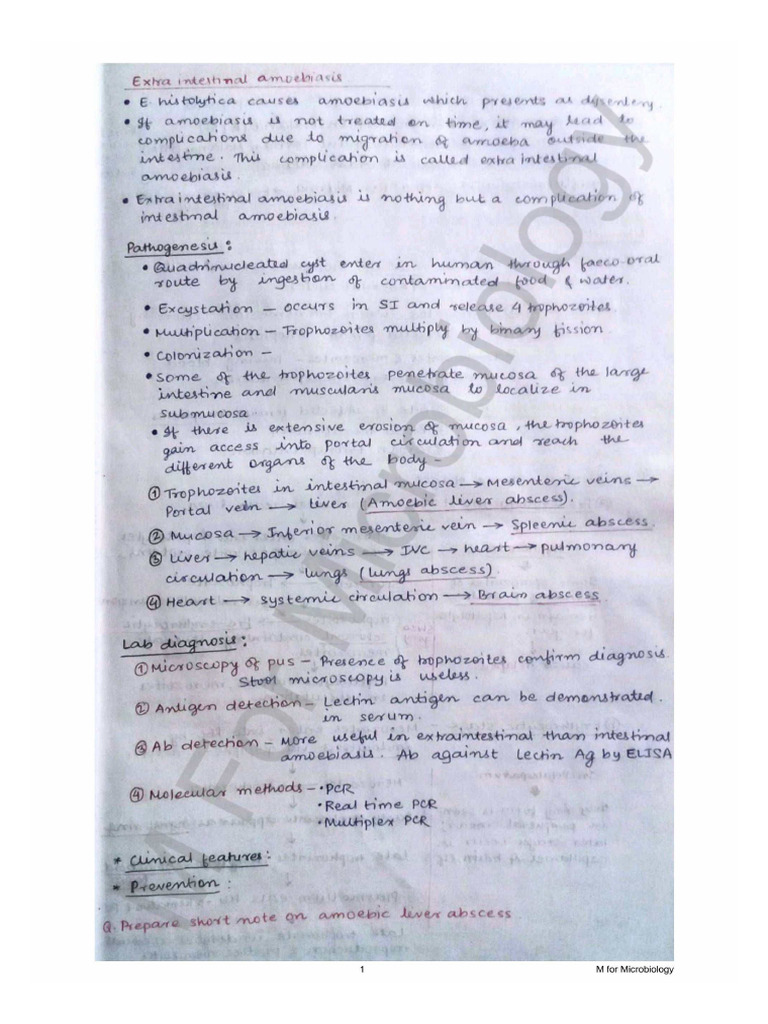 Extra intestinal amoebiasis
• E. histolytica causes amoebiasis which presents as dysentery.
• If amoebiasis is not treated on time, it may lead to
complications due to migration of amoeba outside the
intestine. This complication is called extra intestinal
amoebiasis.
• Extra intestinal amoebiasis is nothing but a complication of
intestinal amoebiasis.
Pathogenesis:
• Quadrinucleated cyst enter in human through faeco-oral
route by ingestion of contaminated food & water.
• Excystation – occurs in SI and release 4 trophozoites.
• Multiplication – Trophozoites multiply by binary fission
• Colonization –
• Some of the trophozoites penetrate mucosa of the large
intestine and muscularis mucosa to localize in
submucosa
• If there is extensive erosion of mucosa, the trophozoites
gain access into portal circulation and reach the
different organs of the body.
① Trophozoites in intestinal mucosa → Mesenteric veins →
Portal vein → liver (Amoebic liver abscess).
② Mucosa → Inferior mesenteric vein → Spleenic abscess.
③ Liver → hepatic veins → IVC → heart → pulmonary
circulation → lungs (lungs abscess).
④ Heart → systemic circulation → Brain abscess.
Lab diagnosis:
① Microscopy of pus – Presence of trophozoites confirm diagnosis.
Stool microscopy is useless.
② Antigen detection – Lectin antigen can be demonstrated.
in serum.
③ Ab detection – More useful in extraintestinal than intestinal
amoebiasis. Ab against Lectin Ag by ELISA
④ Molecular methods – • PCR
• Real time PCR
• Multiplex PCR
* Clinical features:
* Prevention:
Q. Prepare short note on amoebic liver abscess.
M For Microbiology
1
M for Microbiology